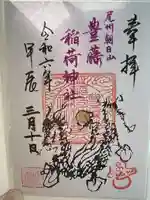 奉拝
尾州朝日山
豊藤
稲荷神社
令和六年
甲辰
三月十日